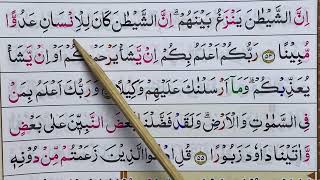 اِنَّ الشَّيْطٰنَ يَنْزَغُ بَيْنَهُمْ ؕ اِنَّ الشَّيْطٰنَ كَانَ لِلْاِنْسَانِ عَدُوًّا
مُّبِيْنًا ۝۵۳ رَبُّكُمْ اَعْلَمُ بِكُمْ ؕ اِنْ يَّشَاْ يَرْحَمْكُمْ اَوْ اِنْ يَّشَاْ
يُعَذِّبْكُمْ ؕ وَمَاۤ اَرْسَلْنٰكَ عَلَيْهِمْ وَكِيْلًا ۝۵۴ وَرَبُّكَ اَعْلَمُ بِمَنْ
فِي السَّمٰوٰتِ وَالْاَرْضِ ؕ وَلَقَدْ فَضَّلْنَا بَعْضَ النَّبِيّٖنَ عَلٰى بَعْضٍ
وَّاٰتَيْنَا دَاوٗدَ زَبُوْرًا ۝۵۵ قُلِ ادْعُوا الَّذِيْنَ زَعَمْتُمْ مِّنْ دُوْنِهٖ